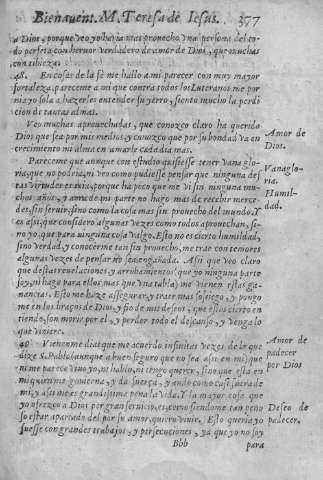 Bienauent. M. Teresa de Iesus. 377
a Dios, porque veo q̃ haria mas prouecho vna persona del todo
perfeta con heruor verdadero de amor de Dios, que muchas
con tibieza.
48. En cosas de la fè me hallo a mi parecer con muy mayor
fortaleza. pareceme a mi que contra todos los Luteranos me pornia
yo sola a hazerles entender su yerro, siento mucho la perdicion
de tantas almas.
Veo muchas aprouechadas, que conozco claro ha querida
Dios que sea por mis medios, y conozco que por su bondad va en
crecimiento mi alma en amarle cada dia mas.
Amor de
Dios.
Pareceme que aunque con estudio quisiesse tener vanagloria,
que no podria, ni veo como pudiesse pensar que ninguna destas
virtudes es mia, porque ha poco que me vi sin ninguna muchos
años, y aora de mi parte no hago mas de recebir mercedes,
sin seruir, sino como la cosa mas sin prouecho del mundo. Y
es assi, que considero algunas vezes como todos aprouechan, sino
yo, que para ninguna cosa valgo. Esto no es cierto humildad,
sino verdad, y conocerme tan sin prouecho, me trae con temores
algunas vezes de pensar no sea engañada. Assi que veo claro
que destas reuelaciones y arrobamientos (que yo ninguna parte
soy, ni hago para ellos mas que vna tabla) me vienen estas ganancias.
Esto me haze assegurar, y traer mas sosiego, y pongome
en los braços de Dios, y fio de mis deseos, que estos cierto entiendo,
son morir por el, y perder todo el descanso, y venga lo
que viniere.
Vanagloria.
Humildad.
49. Vienenme dias que me acuerdo infinitas vezes de lo que
dize S. Pablo (aunque a buen seguro que no sea assi en mi) que
ni me parece viuo yo, ni hablo, ni tengo querer, sino que està en
mi quien me gouierna, y da fuerça, y ando como casi fuera de
mi, y assi me es grandissima pena la vida. Y la mayor cosa que
yo ofrezco a Dios por gran seruicio, es, como siendome tan penoso
estar apartada del por su amor, quiero viuir. Esto querria yo
fuesse con grandes trabajos, y persecuciones, ya que yo no soy
Amor de
padecer
por Dios
Deseo de
padecer.
Bbb para